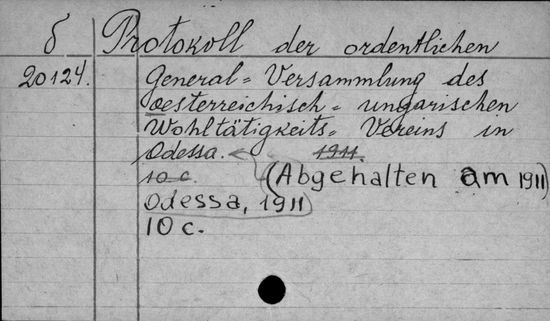 б Protokoll der ordentlichen
20124. General= Versammlung des
Oesterreichisch= ungarischen
Wohltätigkeits= Vereins in
Odessa. 1911.
10 c. (Abgehalten am 1911)
Odessa, 1911
10 c.